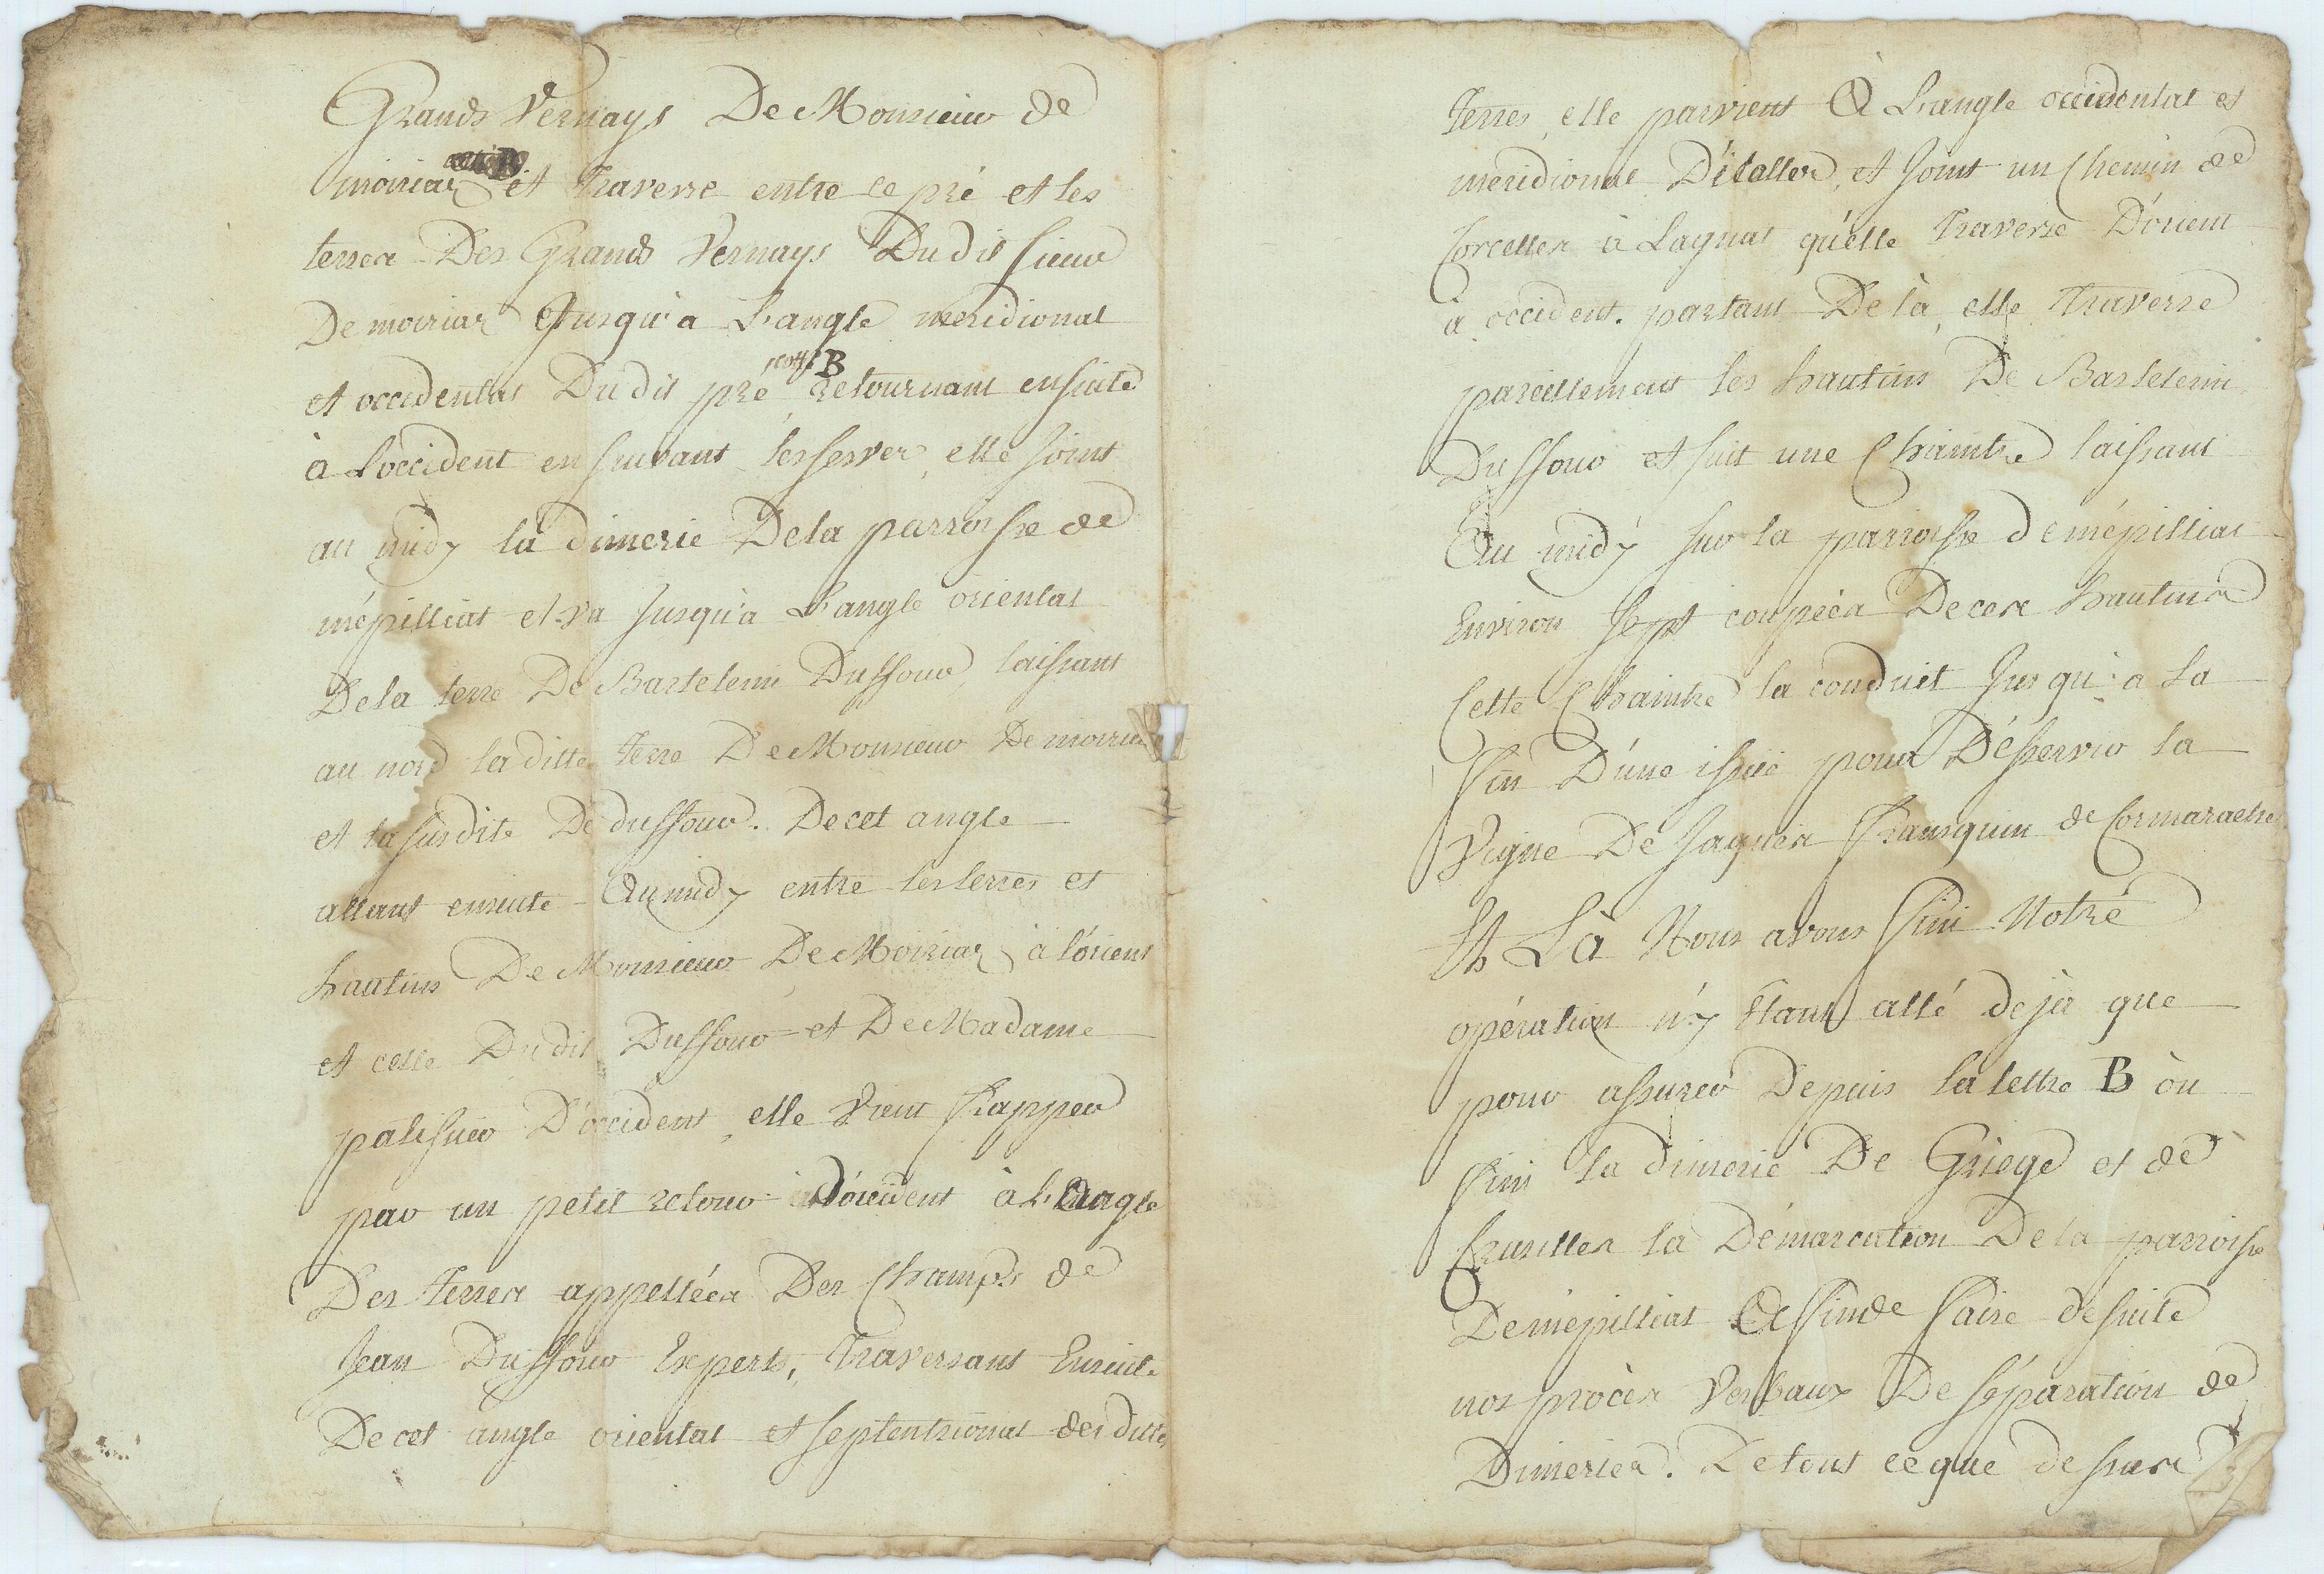 Grands Vernays De Monsieur de
moiriat et traverse entre ce pré et les
terres Des Grands Vernays Du dit sieur
De moiriat Jusqu'a L'angle meridional
cotté B
et occidental Du dit pré, retournant ensuite
à L'occident en suivant les serves, elle joint
au midy la dimerie De la parroisse de
mépilliat et va jusqu'a L'angle oriental
De la terre De Bartelemi Duffour, laissant
au nord la ditte terre De Monsieur De moiria
et la susdite De duffour. De cet angle
allant ensuite Au midy entre les terres et
hautins De Monsieur De Moiriat à l'orient
et celle Du dit Duffour et De Madame
palissier D'occident, elle vient frapper
par un petit retour D'occident à L'Angle
Des terres appellées Des Champs de
Jean Duffour Experts, traversant Ensuite
De cet angle oriental et septentrional des dittes
terres, elle parvient A L'angle occidental et
meridional D'icelles, et joint un Chemin de
Corcelles à Lagnat qu'elle traverse D'orient
à occident. partant De là, elle traverse
pareillement les hautins De Bartelemi
Duffour et suit une Chaintre laissant
Au midy sur la parroisse de mépilliat
Environ sept coupées De ces hautins
Cette Chaintre la conduit jusqu'a La
fin D'une issüe pour Déservir la
Vigne De Jaques Fransquin de Cormarache
Et Là Nous avons fini Notre
opération n'y Etant allé deja que
pour assurer Depuis la lettre B où
fini la dimerie De Griege et de
Cruzilles la Démarcation De la parroisse
De mépilliat Afin de faire de suite
nos procès Verbaux De séparation de
Dimeries. De tout ce que dessus